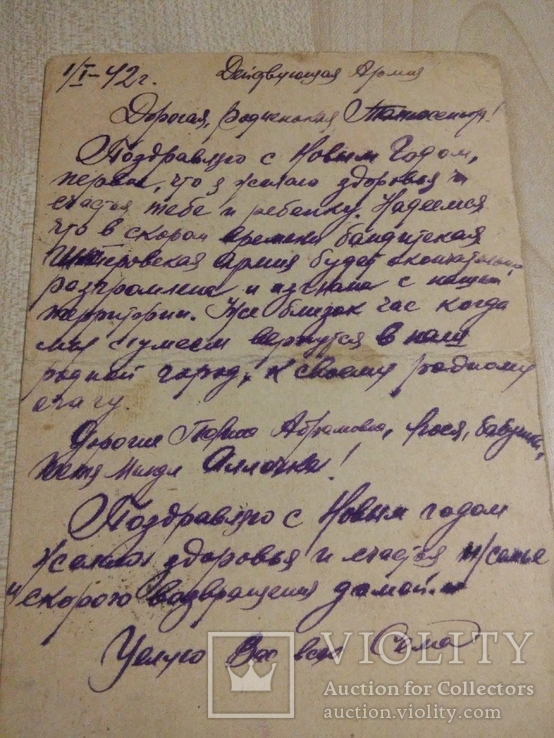 1/I-42 г. Действующая Армия
Дорогая, родненькая!
Поздравляю с Новым Годом,
первое, что я желаю здоровья и
счастья тебе и ребенку. Надеемся
что в скором времени бандитская
Гитлеровская армия будет окончательно
разгромлена и изгнана с нашей
территории. Уже близок час когда
мы сумеем вернутся в наш
родной город, к своему родному
очагу.
Дорогие Абрамовна, бабушка,
тетя Аллочка!
Поздравляю с Новым годом
желаю здоровья и счастья и самое
скорого возвращения домой.
Целую Вас всех Сема
VIOLITY
Auction for Collectors
auction.violity.com